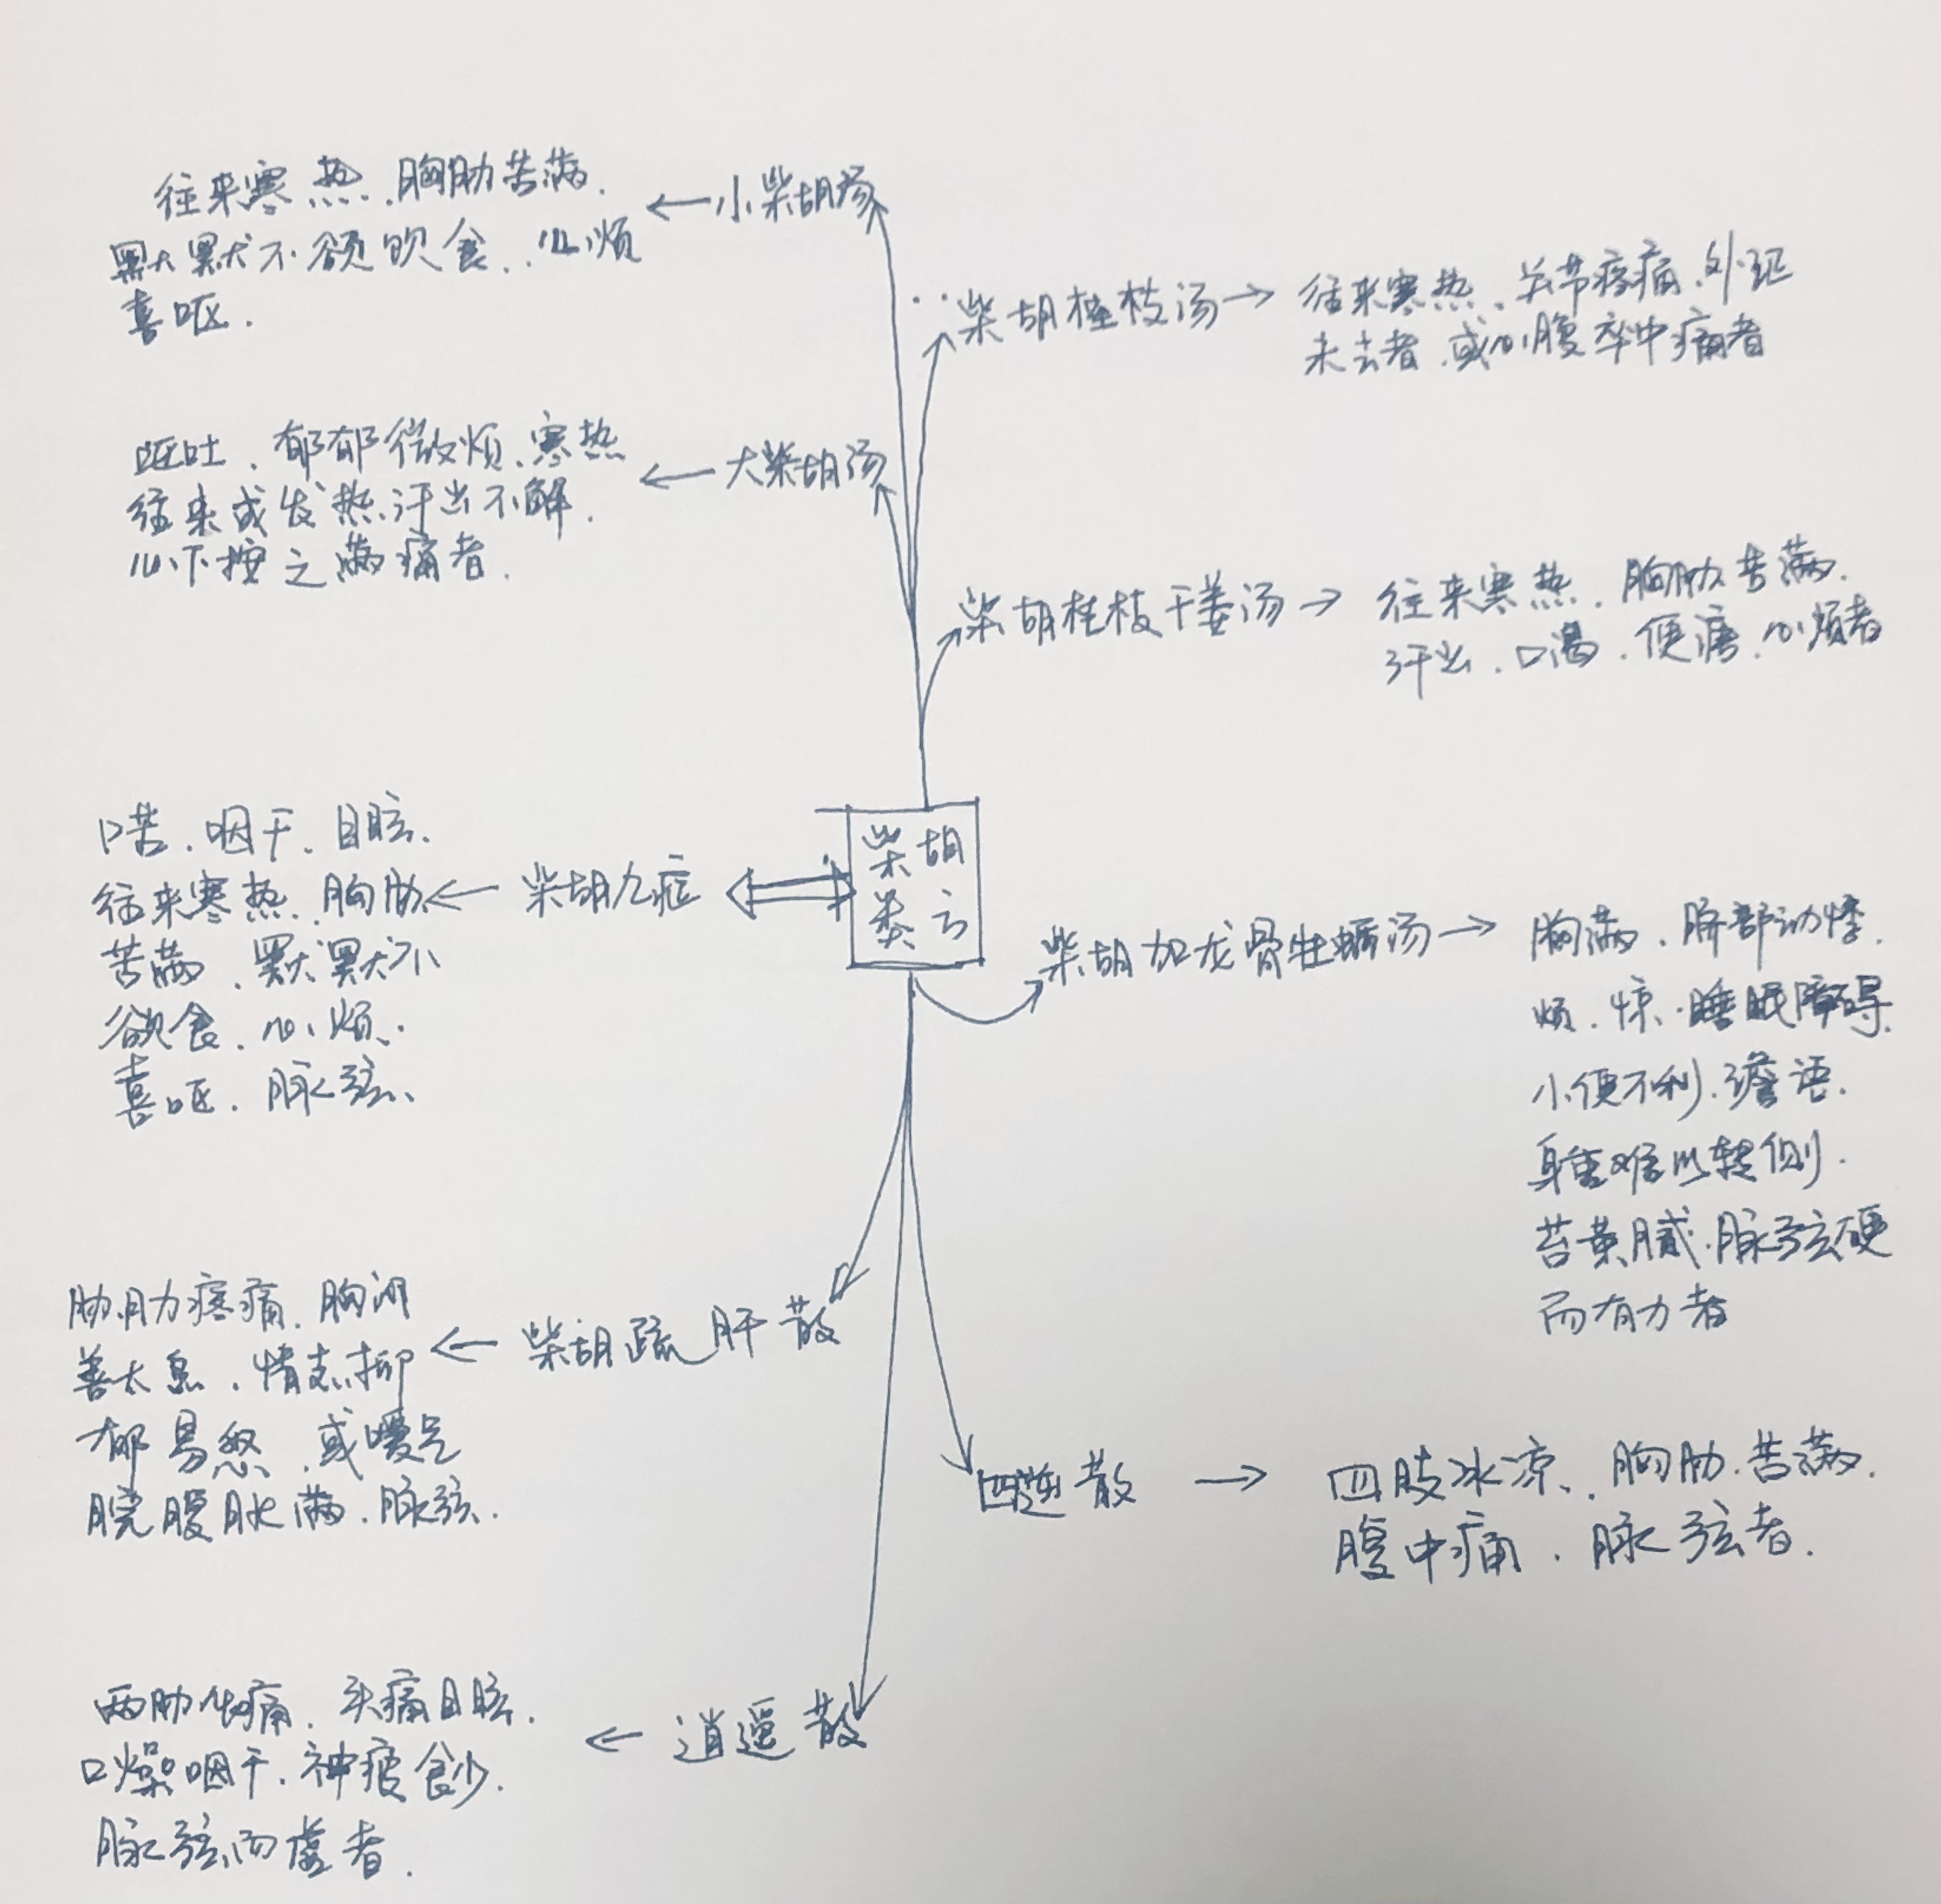 往来寒热.胸肋苦满.
默默不欲饮食.心烦
喜呕.
←小柴胡汤
柴胡桂枝汤→
往来寒热、关节疼痛.外证
未去者.或心腹卒中痛者
呕吐、郁郁微烦、寒热
往来或发热汗出不解.
心下按之满痛者.
←大柴胡汤
柴胡桂枝干姜汤→
往来寒热.胸肋苦满.
汗出.口渴.便溏.心烦者
口苦.咽干.目眩.
往来寒热.胸肋
苦满.默默不
欲食.心烦.
喜呕.脉弦、
←柴胡九症
柴胡
类方
柴胡加龙骨牡蛎汤→
胸满.脐部动悸.
烦.惊.睡眠障碍.
小便不利.谵语.
身重难以转侧.
苔黄腻.脉弦硬
而有力者
胁肋疼痛.胸闷
善太息.情志抑
郁易怒.或嗳气
脘腹胀满.脉弦.
←柴胡疏肝散
四逆散→
四肢冰凉、胸肋苦满.
腹中痛.脉弦者.
两肋作痛.头痛目眩.
口燥咽干.神疲食少.
脉弦而虚者.
←逍遥散